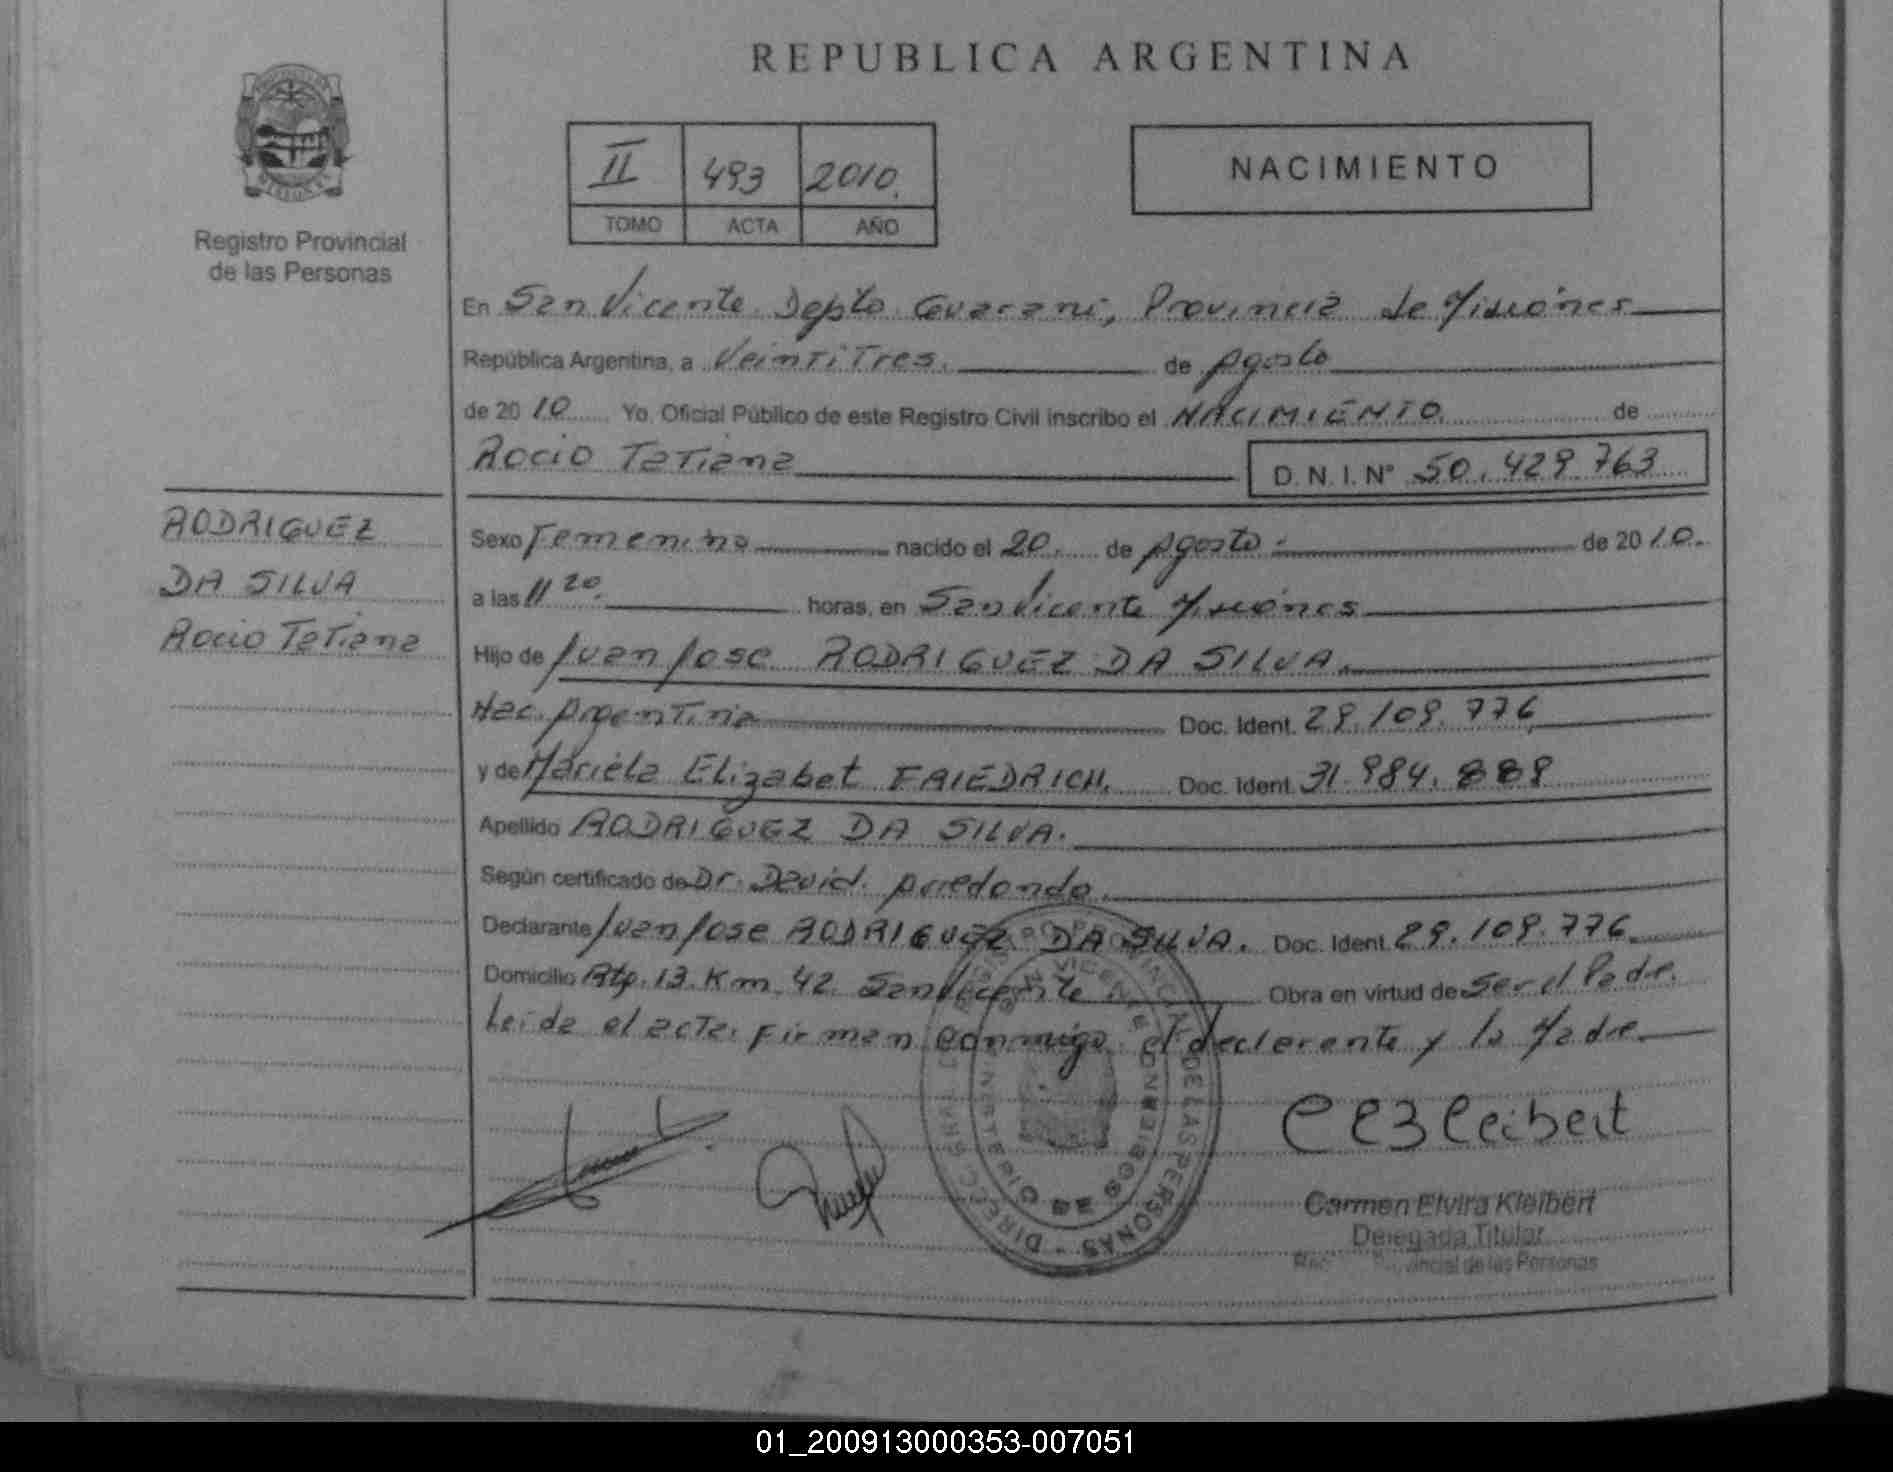 REPUBLICA ARGENTINA
II 493 2010.
TOMO ACTA AÑO
NACIMIENTO
MISIONES
Registro Provincial
de las Personas
En San Vicente Depto Guarani, Provincia de Misiones
República Argentina, a Veintitres. de Agosto
de 2010 Yo, Oficial Público de este Registro Civil inscribo el NACIMIENTO de
Rocio Tatiana D. N. I. N° 50.429.763
RODRIGUEZ
DA SILVA
Rocio Tatiana
Sexo Femenino nacido el 20 de Agosto de 2010.
a las 11 20. horas, en San Vicente Misiones
Hijo de Juan Jose RODRIGUEZ DA SILVA.
Nac. Argentina Doc. Ident. 29.109.776
y de Mariela Elizabet FRIEDRICH. Doc. Ident. 31.984.889
Apellido RODRIGUEZ DA SILVA.
Según certificado de Dr. David Arredondo.
Declarante Juan Jose RODRIGUEZ DA SILVA. Doc. Ident. 29.109.776
Domicilio Rta. 13. Km 42. San Vicente Obra en virtud de Ser el Padre.
Leida el acta. Firman conmigo el declarante y la Madre
Carmen Elvira Kleibert
Delegada Titular
Provincial de las Personas
01_200913000353-007051